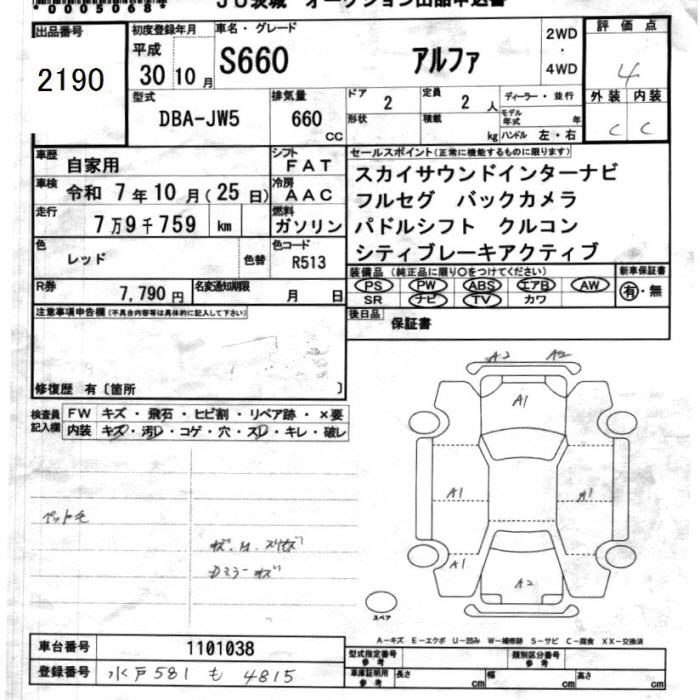 *00050684*
JU茨城 オークション出品申込書
出品番号
2190
初度登録年月
平成
30 10月
車名・グレード
S660 アルファ
2WD
・
4WD
評価点
4
外装 内装
C C
型式
DBA-JW5
排気量
660
CC
ドア 2
定員 2 人
形状
積載 kg
ディーラー・並行
モデル年式 年
ハンドル 左・右
車歴 自家用
シフト FAT
車検 令和 7年10月(25日)
冷房 AAC
走行 7万9千759 km
燃料 ガソリン
色 レッド 色替
色コード R513
R券 7,790円
名変通知期限 月 日
セールスポイント(正常に機能するものに限ります)
スカイサウンドインターナビ
フルセグ バックカメラ
パドルシフト クルコン
シティブレーキアクティブ
装備品(純正品に限り○をつけてください)
PS PW ABS エアB AW
SR ナビ TV カワ
新車保証書
有・無
後日品 保証書
注意事項申告欄(不具合内容等は具体的に記入して下さい)
修復歴 有〔箇所 〕
検査員記入欄
FW キズ・飛石・ヒビ割・リペア跡・×要
内装 キズ・汚レ・コゲ・穴・スレ・キレ・破レ
ペット毛
Dミラーキズ
A2 A2
A1
A1 A1
A1
A2
スペア
A-キズ E-エクボ U-凹み W-補修跡 S-サビ C-腐食 XX-交換済
車台番号 1101038
登録番号 水戸581 も 4815
型式指定番号 参考
類別区分番号 参考
車庫証明用 参考
長さ cm 幅 cm 高さ cm